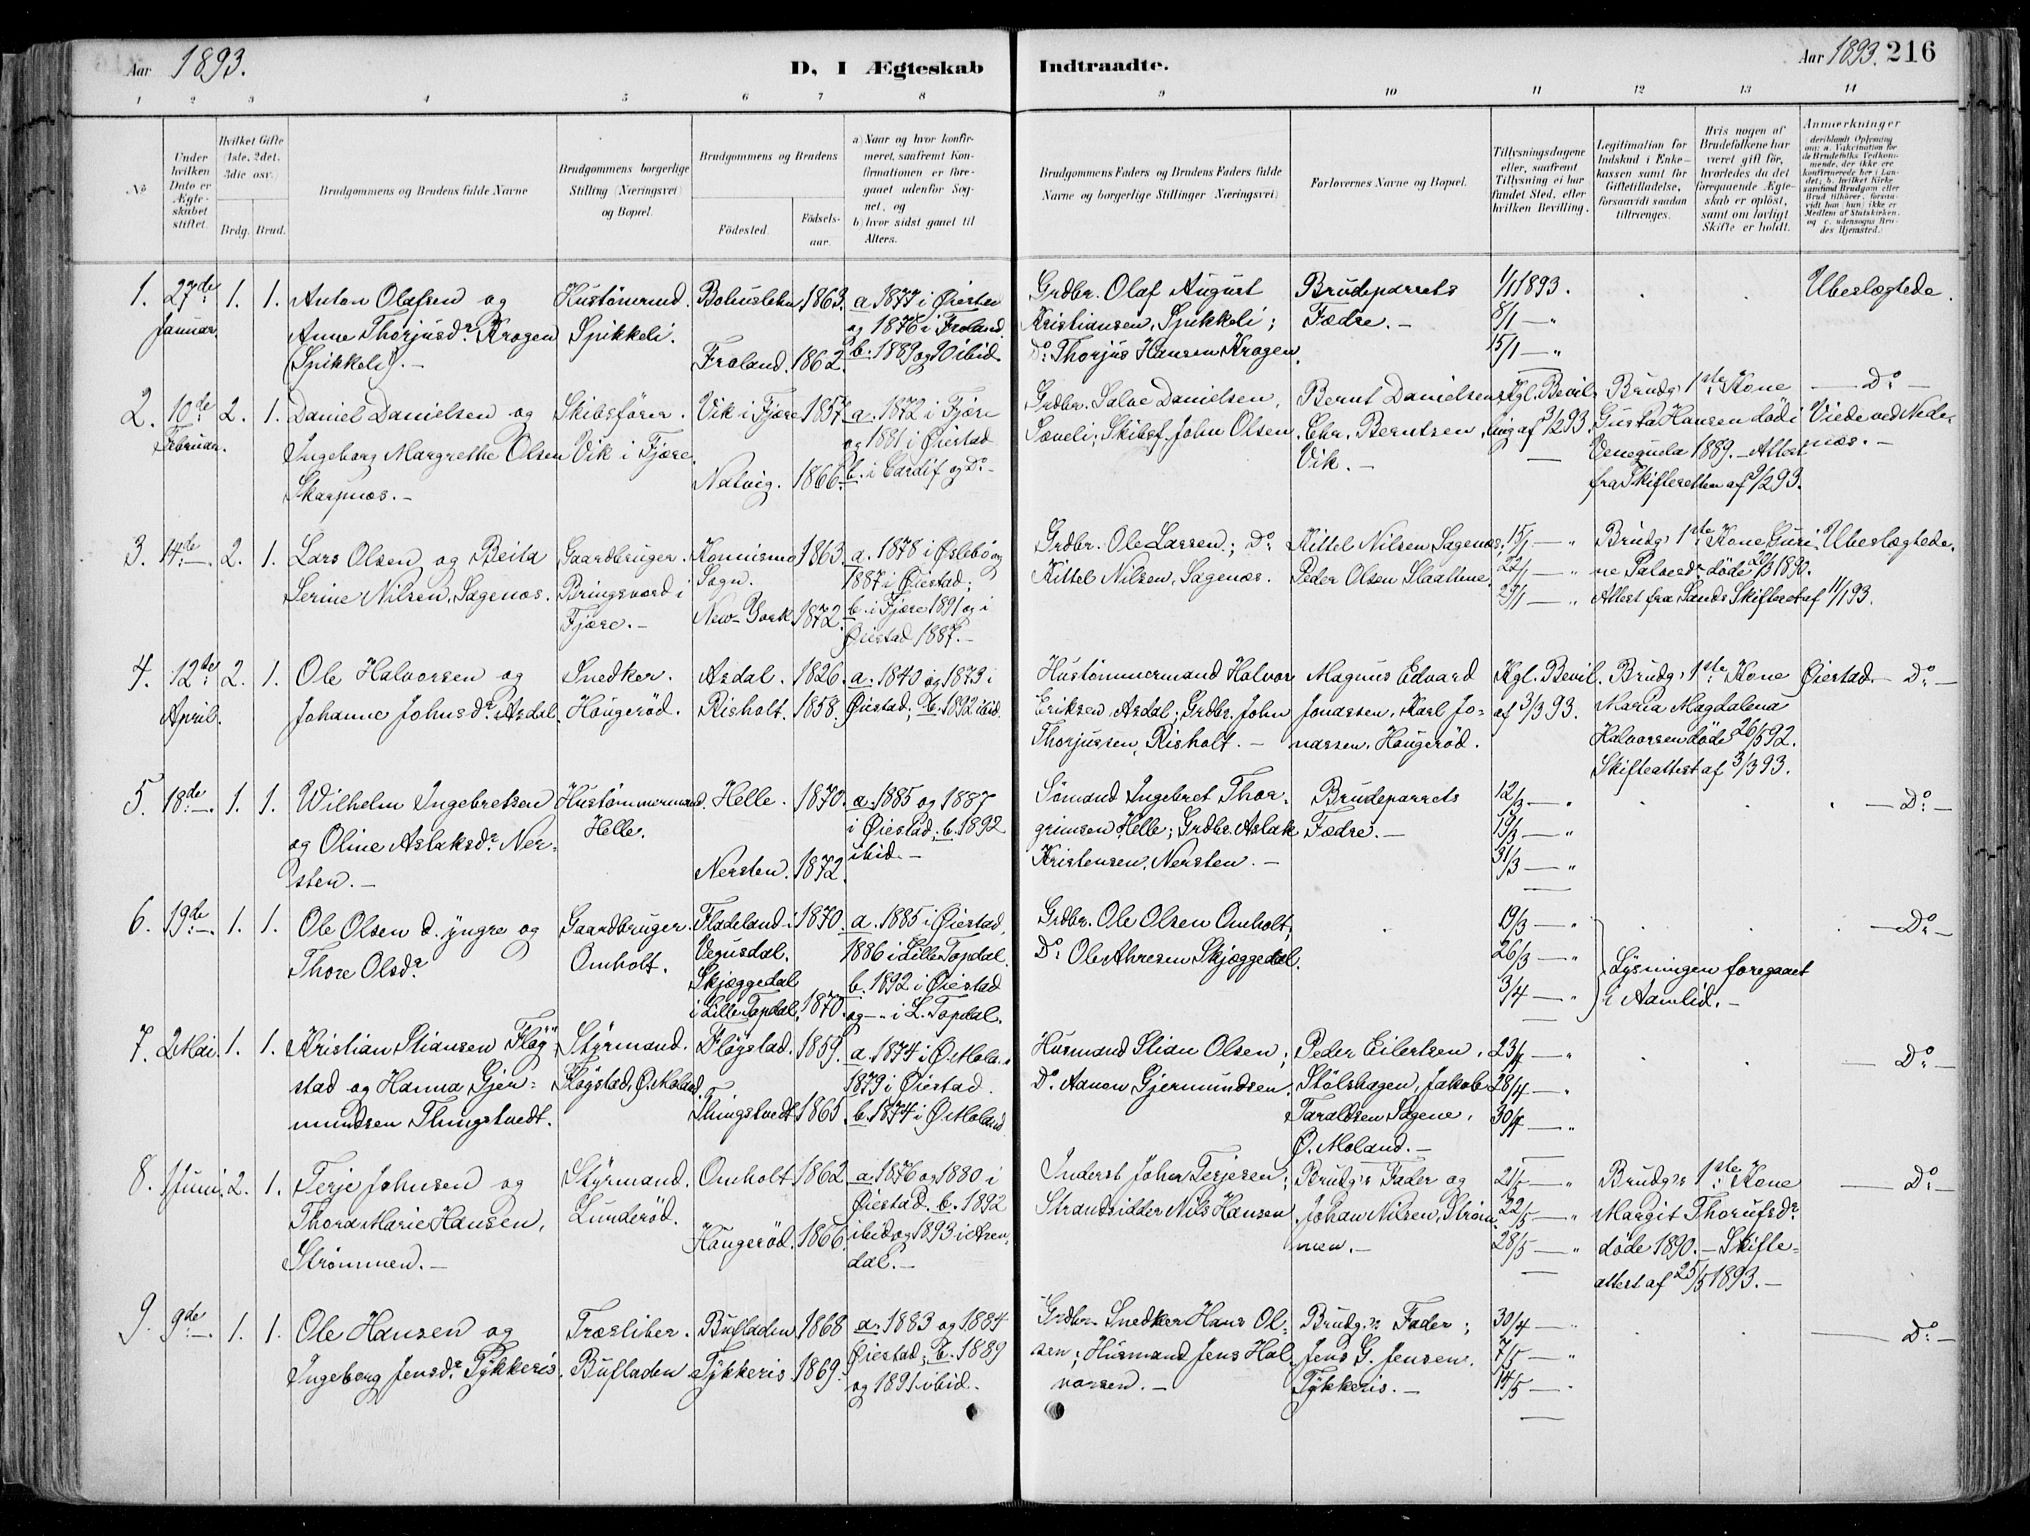 Aar 1893.
D, I Ægteskab Indtraadte.
Aar 1893. 216
1 2 3 4 5 6 7 8 9 10 11 12 13 14
No
Under hvilken Dato er Ægteskabet stiftet.
Hvilket Gifte (1ste, 2det, 3die osv.)
Brdg. Brud.
Brudgommens og Brudens fulde Navne
Brudgommens borgerlige Stilling (Næringsvei) og Bopæl.
Brudgommens og Brudens
Födested. Födsels-aar.
a) Naar og hvor konfirmeret, saafremt Konfirmationen er foregaaet udenfor Sognet, og
b) hvor sidst gaaet til Alters.
Brudgommens Faders og Brudens Faders fulde Navne og borgerlige Stillinger (Næringsvei)
Forlovernes Navne og Bopæl.
Tillysningsdagene eller, saafremt Tillysning ei har fundet Sted, efter hvilken Bevilling.
Legitimation for Indskud i Enkekassen samt for Giftetilladelse, forsaavidt saadan tiltrænges.
Hvis nogen af Brudefolkene har været gift för, hvorledes da det foregaaende Ægteskab er oplöst, samt om lovligt Skifte er holdt.
Anmærkninger
(deriblandt Oplysning om: a. Vakcination for de Brudefolks Vedkommende, der ikke ere konfirmerede her i Landet; b. hvilket Kirkesamfund Brudgom eller Brud tilhörer, forsaavidt han (hun) ikke er Medlem af Statskirken, og c. udensogns Brudes Hjemsted.)
1. 27de Januar. 1. 1. Anton Olafsen og
Anne Thorjusdr. Krogen
(Spikkeli). -
Hustømrmd.
Spikkeli.
Bohuslehn 1863.
Froland. 1862.
a. 1877 i Øiestad
og 1876 i Froland.
b. 1889 og 90 ibid.
Grdbr. Olaf August
Kristiansen, Spikkeli;
Do. Thorjus Hansen Krogen.
Brudeparrets
Fædre. -
1/1 1893.
8/1 — "
15/1 — "
Ubeslægtede.
2. 10de Februar. 2. 1. Daniel Danielsen og
Ingeborg Margrethe Olsen
Skarpnæs. -
Skibsfører.
Vik i Fjære.
Vik i Fjære 1857.
Natvig. 1866.
a. 1872 i Fjære
og 1881 i Øiestad
b. i Cardif og Do. -
Grdbr. Salve Danielsen,
Sæveli; Skibsf. John Olsen
Bernt Danielsen,
Chr. Berntsen,
Vik. -
Kgl. Bevil-
ling af 3/2 93.
Brudg.s 1ste Kone
Gusta Hansen død i
Venezuela 1889. - Attest
fra Skifteretten af 9/2 93.
— Do. —
Viede ved Nede-
næs. -
3. 14de —. 2. 1. Lars Olsen og Beita
Serine Nilsen, Sagenæs.
Gaardbruger.
Bringsværd i
Fjære. -
Konnismo
Sogn. 1863.
New-York 1872.
a. 1878 i Øslebø og
1887 i Øiestad;
b. i Fjære 1891 og i
Øiestad 1887. -
Grdbr. Ole Larsen; Do.
Kittel Nilsen, Sagenæs.
Kittel Nilsen Sagenæs;
Peder Olsen Slaattene.
15/1 — "
22/1 — "
29/1 — "
Brudg.s 1ste Kone Guri-
ne Salvesdr. døde 20/3 1890.
Attest fra Sands Skifteret af 11/1 93.
Ubeslægtede.
4. 12de April. 2. 1. Ole Halvorsen og
Johanne Johnsdr. Asdal.
Snedker.
Haugerød.
Asdal. 1826.
Risholt. 1858.
a. 1840 og 1873 i
Øiestad; b. 1892 ibid.
Hustømmermand Halvor
Eriksen, Asdal; Grdbr. John
Thorjussen, Risholt. -
Magnus Edvard
Jonassen, Karl Jo-
nassen, Haugerød.
Kgl. Bevil.
af 3/3 93.
Brudg.s 1ste Kone
Maria Magdalena
Halvorsen døde 26/5 92.
Skifteattest af 3/3 93.
Øiestad. - Do. —
5. 18de —. 1. 1. Wilhelm Ingebretsen
og Oline Aslaksdr. Ner-
sten. -
Hustømmermand.
Helle.
Helle. 1870.
Nersten. 1872.
a. 1885 og 1887
i Øiestad; b. 1892
ibid. -
Sømand Ingebret Thor-
grimsen, Helle; Grdbr. Aslak
Kristensen, Nersten. -
Brudeparrets
Fædre. -
12/3 — "
19/3 — "
31/3 — "
— Do. —
6. 19de —. 1. 1. Ole Olsen d. yngre og
Thore Olsdr.
Gaardbruger.
Omholt.
Fladeland i
Vegusdal. 1870.
Skjæggedal
i Lille Topdal. 1870.
a. 1885 i Øiestad,
1886 i Lille Topdal.
b. 1892 i Øiestad
og —„— i L. Topdal.
Grdbr. Ole Olsen Omholt;
Do. Ole Ahresen Skjæggedal.
19/3 — "
26/3 — "
3/4 — "
Lysningen foregaaet
i Aamlid. -
— Do. —
7. 2 Mai. 1. 1. Kristian Stiansen Fløg-
stad og Hanna Gjer-
mundsen Thingstvedt.
Styrmand.
Fløgstad, Ø. Moland.
Fløgstad. 1859.
Thingstvedt 1865.
a. 1874 i Ø. Mola...
1879 i Øiestad.
b. 1874 i Ø. Moland.
Husmand Stian Olsen;
Do. Aanon Gjermundsen.
Peder Eilertsen,
Stølshagen, Jakob
Taraldsen Sagene,
Ø. Moland. -
23/4 — "
28/4 — "
30/4 — "
— Do. —
8. 1 Juni. 2. 1. Terje Johnsen og
Thora Marie Hansen,
Strømmen. -
Styrmand.
Lunderød.
Omholt. 1862
Haugerød. 1866.
a. 1876 og 1880 i
Øiestad. b. 1892
ibid og 1893 i Aren-
dal. -
Inderst John Terjesen;
Strandsidder Nils Hansen
Brudg.s Fader og
Johan Nilsen, Strøm-
men. -
21/5 — "
22/5 — "
28/5 — "
Brudg.s 1ste Kone
Margit Thorufsdr.
døde 1890. - Skifte-
attest af 25/5 1893. -
— Do. —
9. 9de —. 1. 1. Ole Hansen og
Ingeborg Jensdr. Tykkeris.
Træsliber.
Bufladen
Bufladen 1868
Tykkeris 1869.
a. 1883 og 1884
Øiestad; b. 1889
og 1891 ibid.
Grdbr. Snedker Hans Ol-
sen; Husmand Jens Hal-
vorsen. -
Brudg.s Fader;
Jens G. Jensen,
Tykkeris. -
30/4 — "
7/5 — "
14/5 — "
— Do. —